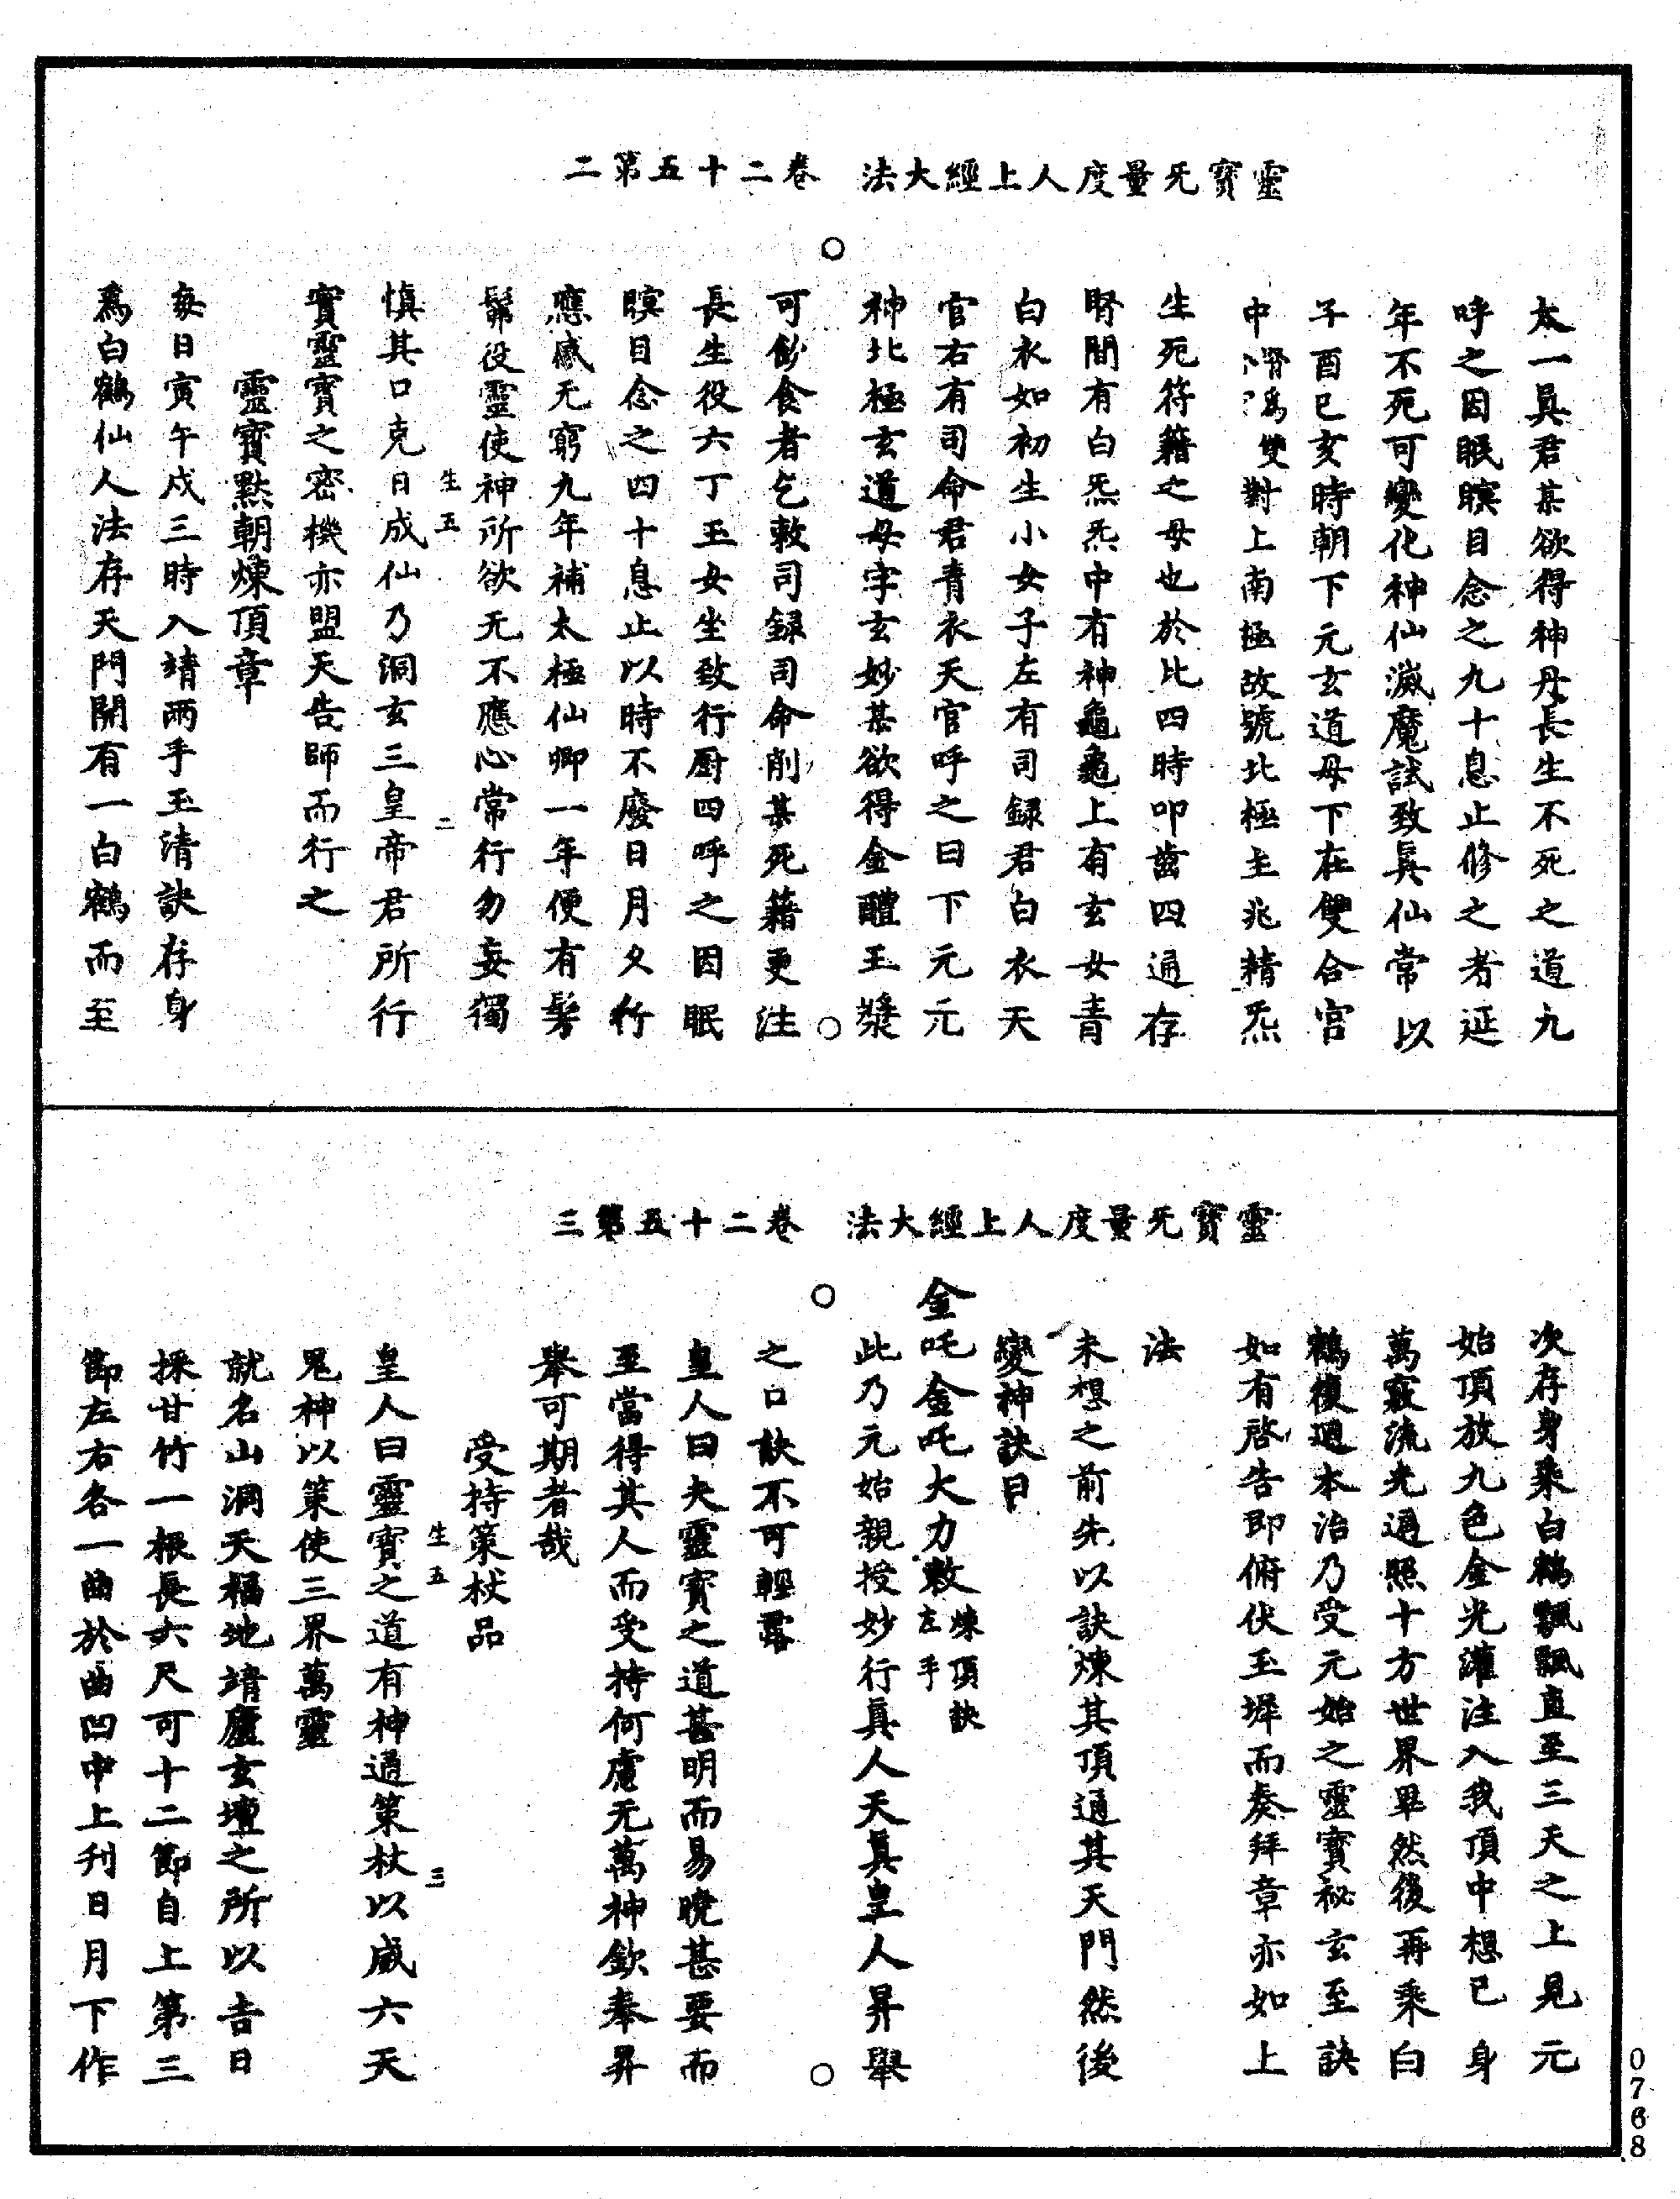 靈寶无量度人上經大法　卷二十五第二
太一眞君某欲得神丹長生不死之道九
呼之因眠瞑目念之九十息止修之者延
年不死可變化神仙滅魔試致眞仙常以
子酉巳亥時朝下元玄道母下在雙合宮
中腎爲雙對上南極故號北極主兆精炁
生死符籍之母也於比四時叩齒四通存
腎間有白炁炁中有神龜龜上有玄女青
白衣如初生小女子左有司録君白衣天
官右有司命君青衣天官呼之曰下元元
神北極玄道母字玄妙某欲得金醴玉漿
可飲食者乞敕司録司命削某死籍更注
長生役六丁玉女坐致行厨四呼之因眠
瞑目念之四十息止以時不廢日月久行
應感无窮九年補太極仙卿一年便有髣
髴役靈使神所欲无不應心常行勿妄獨
生五　二
愼其口克日成仙乃洞玄三皇帝君所行
實靈寶之密機亦盟天告師而行之
靈寶黙朝煉頂章
每日寅午戌三時入靖兩手玉清訣存身
爲白鶴仙人法存天門開有一白鶴而至
靈寶无量度人上經大法　卷二十五第三
次存身乘白鶴飄飄直至三天之上見元
始頂放九色金光灌注入我頂中想已身
萬竅流光遍照十方世界畢然後再乘白
鶴復迴本治乃受元始之靈寶祕玄至訣
如有啓告即俯伏玉墀而奏拜章亦如上
法
未想之前先以訣煉其頂通其天門然後
變神訣曰
金吒金吒大力敕煉頂訣左手
此乃元始親授妙行眞人天眞皇人昇舉
之口訣不可輕露
皇人曰夫靈寶之道甚明而易曉甚要而
至當得其人而受持何慮无萬神欽奉昇
舉可期者哉
受持策杖品
生五　三
皇人曰靈寶之道有神通策杖以威六天
鬼神以策使三界萬靈
就名山洞天福地靖廬玄壇之所以吉日
採甘竹一根長六尺可十二節自上第三
節左右各一曲於曲凹中上刋日月下作
0768